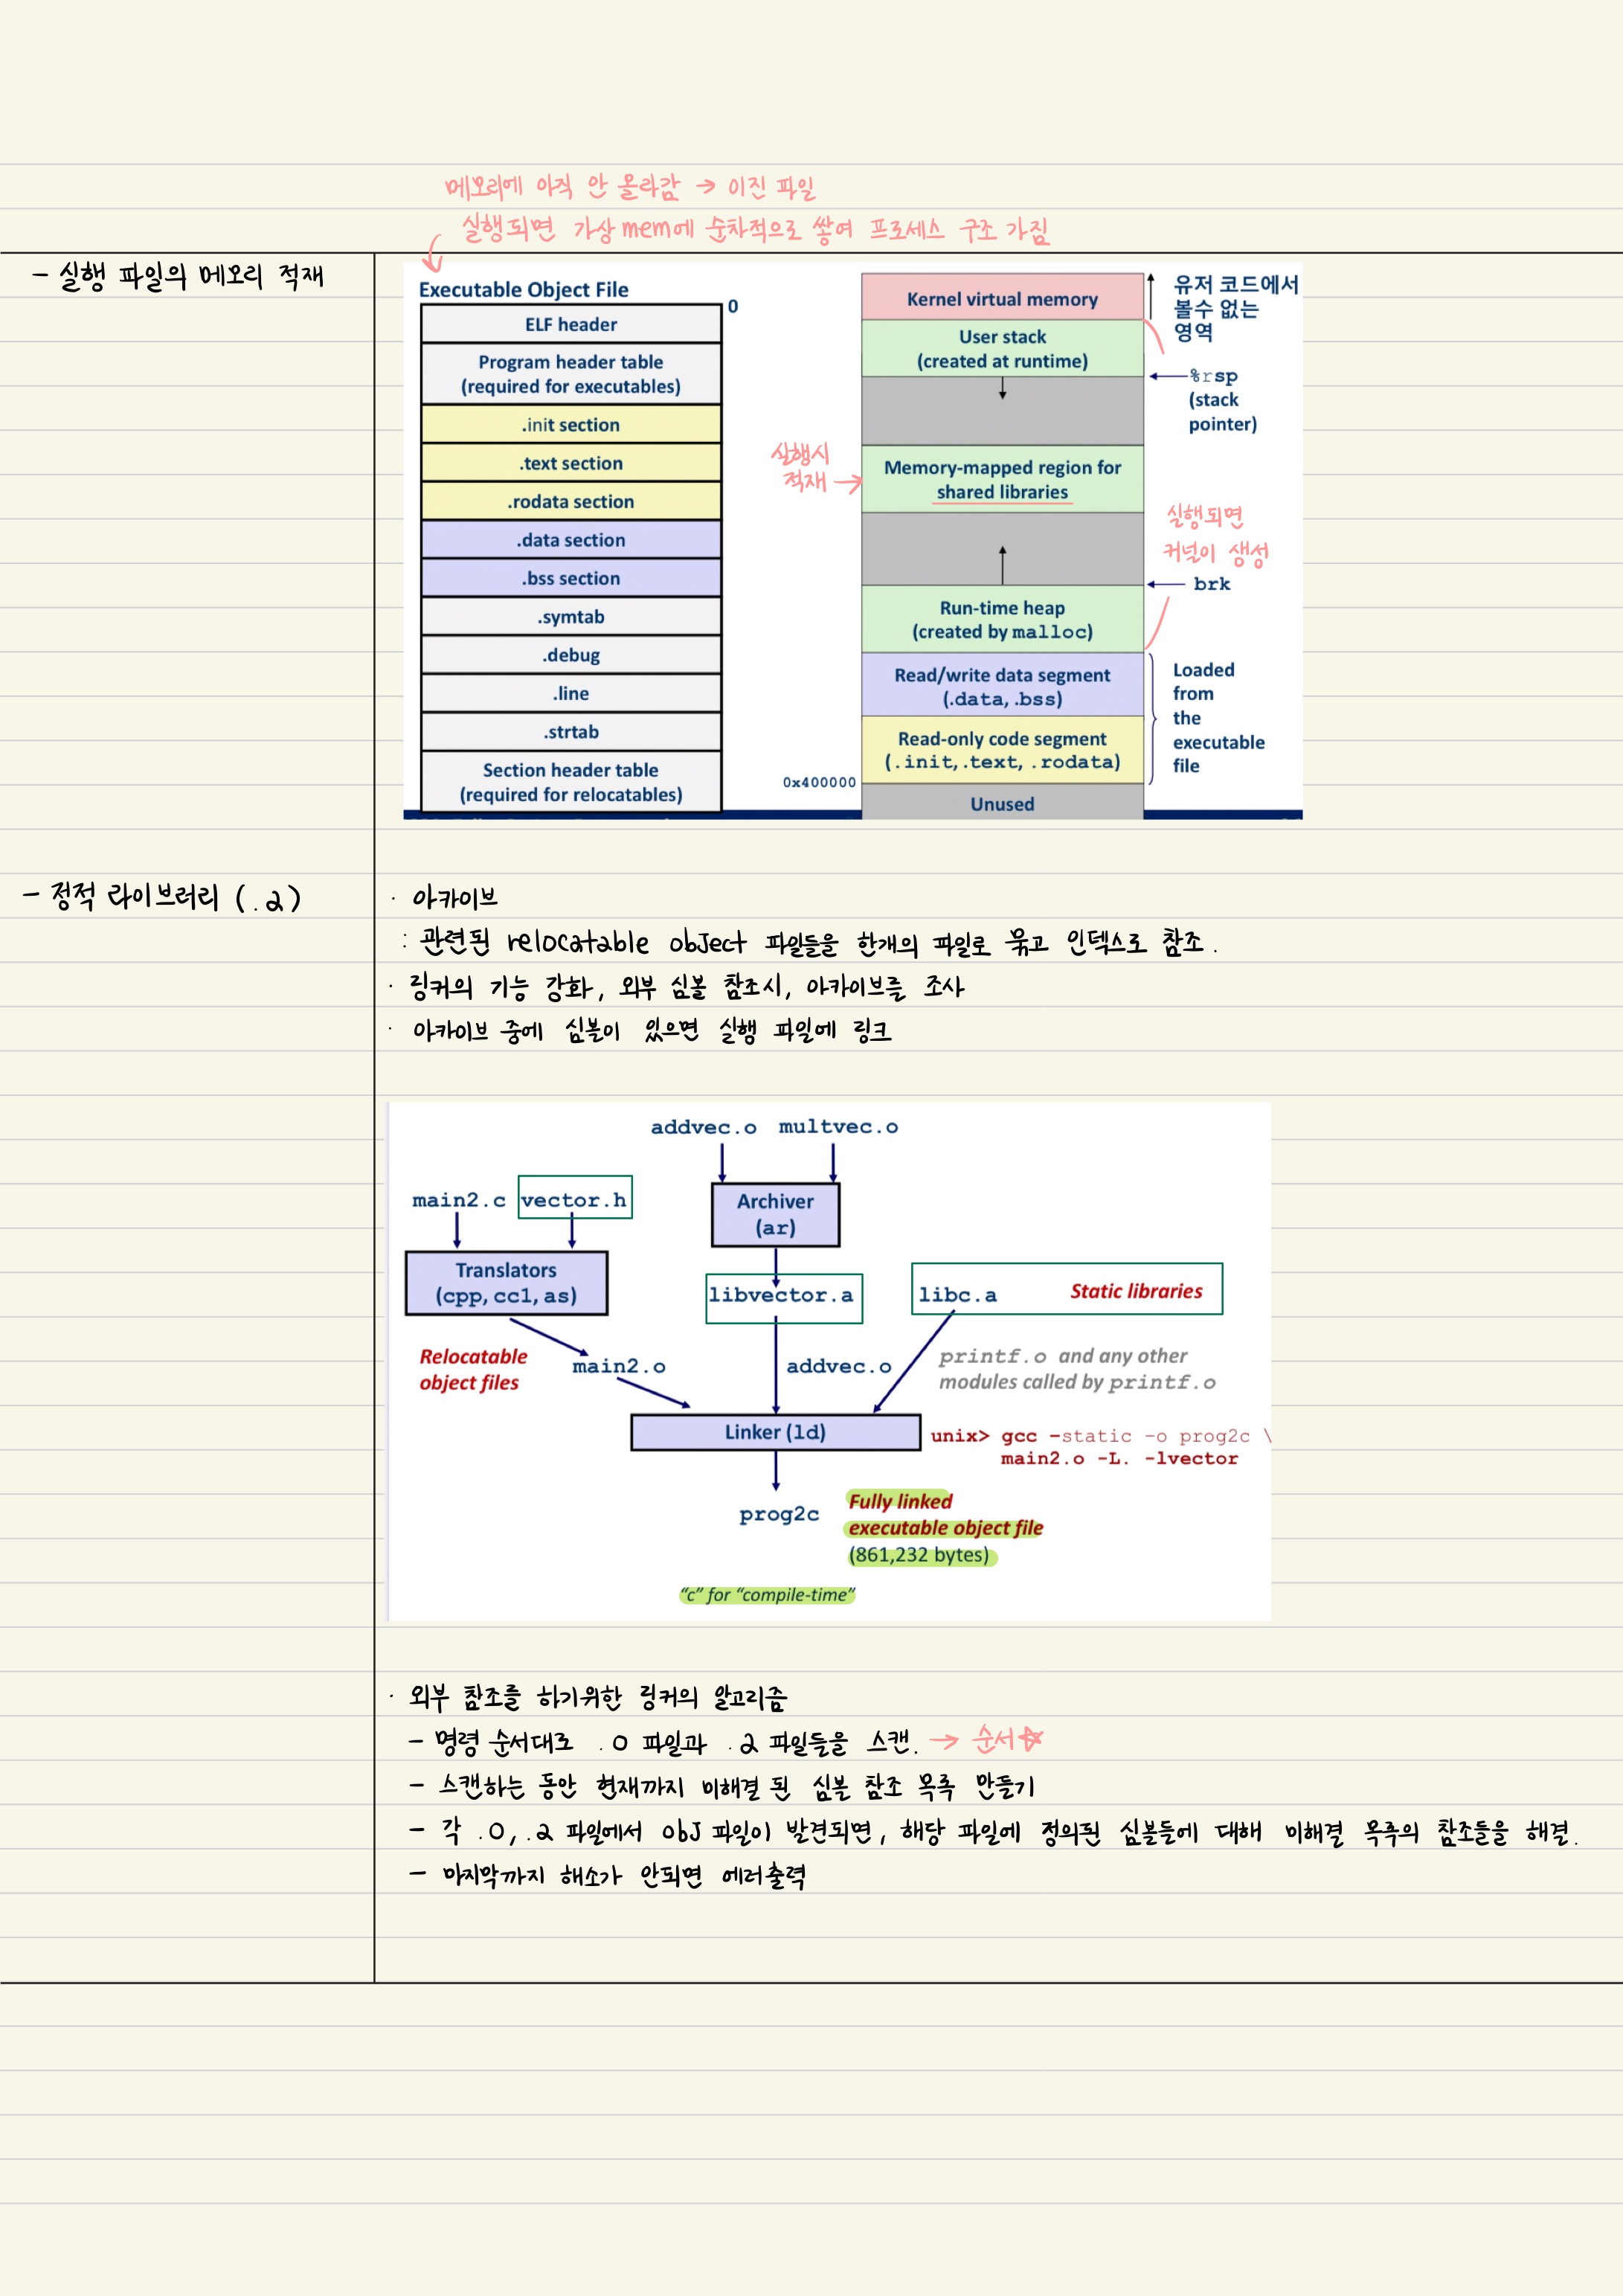 메모리에 아직 안 올라감 → 이진 파일
실행되면 가상 mem에 순차적으로 쌓여 프로세스 구조 가짐
- 실행 파일의 메모리 적재
Executable Object File
0
ELF header
Program header table
(required for executables)
.init section
.text section
.rodata section
.data section
.bss section
.symtab
.debug
.line
.strtab
Section header table
(required for relocatables)
Kernel virtual memory
유저 코드에서
볼수 없는
영역
User stack
(created at runtime)
%rsp
(stack
pointer)
실행시
적재 →
Memory-mapped region for
shared libraries
실행되면
커널이 생성
brk
Run-time heap
(created by malloc)
Read/write data segment
(.data, .bss)
Read-only code segment
(.init, .text, .rodata)
Loaded
from
the
executable
file
0x400000
Unused
- 정적 라이브러리 (.a)
· 아카이브
: 관련된 relocatable object 파일들을 한개의 파일로 묶고 인덱스로 참조.
· 링커의 기능 강화, 외부 심볼 참조시, 아카이브를 조사
· 아카이브 중에 심볼이 있으면 실행 파일에 링크
addvec.o multvec.o
main2.c vector.h
Archiver
(ar)
Translators
(cpp, cc1, as)
libvector.a
libc.a
Static libraries
Relocatable
object files
main2.o
addvec.o
printf.o and any other
modules called by printf.o
Linker (ld)
unix> gcc -static -o prog2c \
main2.o -L. -lvector
prog2c
Fully linked
executable object file
(861,232 bytes)
"c" for "compile-time"
· 외부 참조를 하기위한 링커의 알고리즘
- 명령 순서대로 .o 파일과 .a 파일들을 스캔. → 순서☆
- 스캔하는 동안 현재까지 미해결 된 심볼 참조 목록 만들기
- 각 .o, .a 파일에서 obj 파일이 발견되면, 해당 파일에 정의된 심볼들에 대해 미해결 목록의 참조들을 해결.
- 마지막까지 해소가 안되면 에러출력